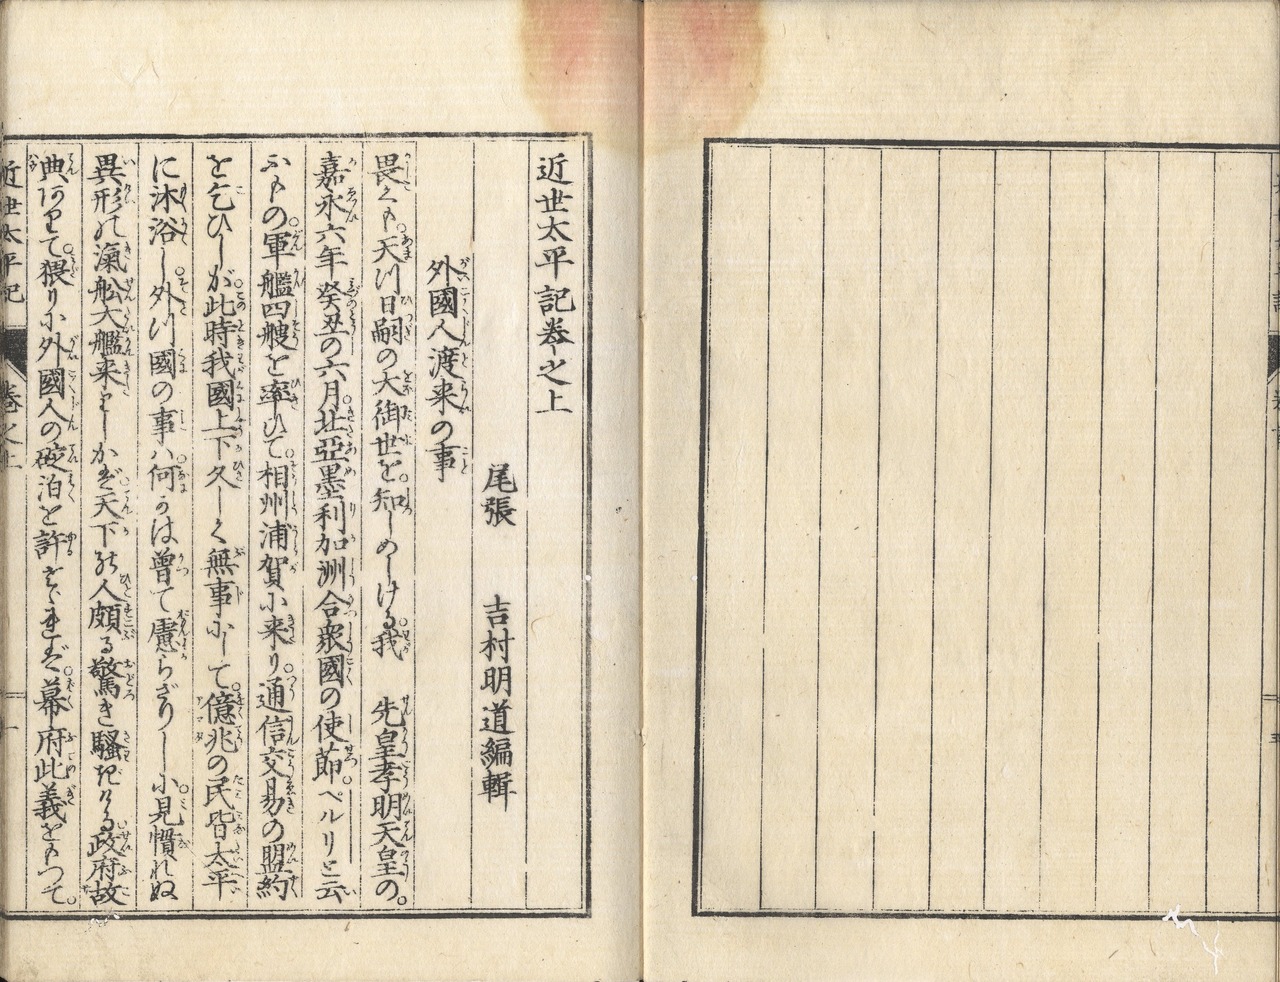 近世太平記卷之上
尾張　吉村明道編輯
外國人渡来の事
畏くも。天津日嗣の大御世を。知しめしける。我　先皇孝明天皇の。
嘉永六年癸丑の六月。北亞墨利加洲合衆國の使節。ペルリと云
ふもの。軍艦四艘を率ひて。相州浦賀に来り。通信交易の盟約
を乞ひしが。此時我國上下久しく無事にして。億兆の民皆太平
に沐浴し。外つ國の事ハ。何かは曽て慮らざりしに。見慣れぬ
異形の瀛舩大艦来りしかば。天下の人頗る驚き騒ぎける。政府故
典ありて。猥りに外國人の碇泊を許されず。幕府此義をもつて。
近世太平記　卷之上　一